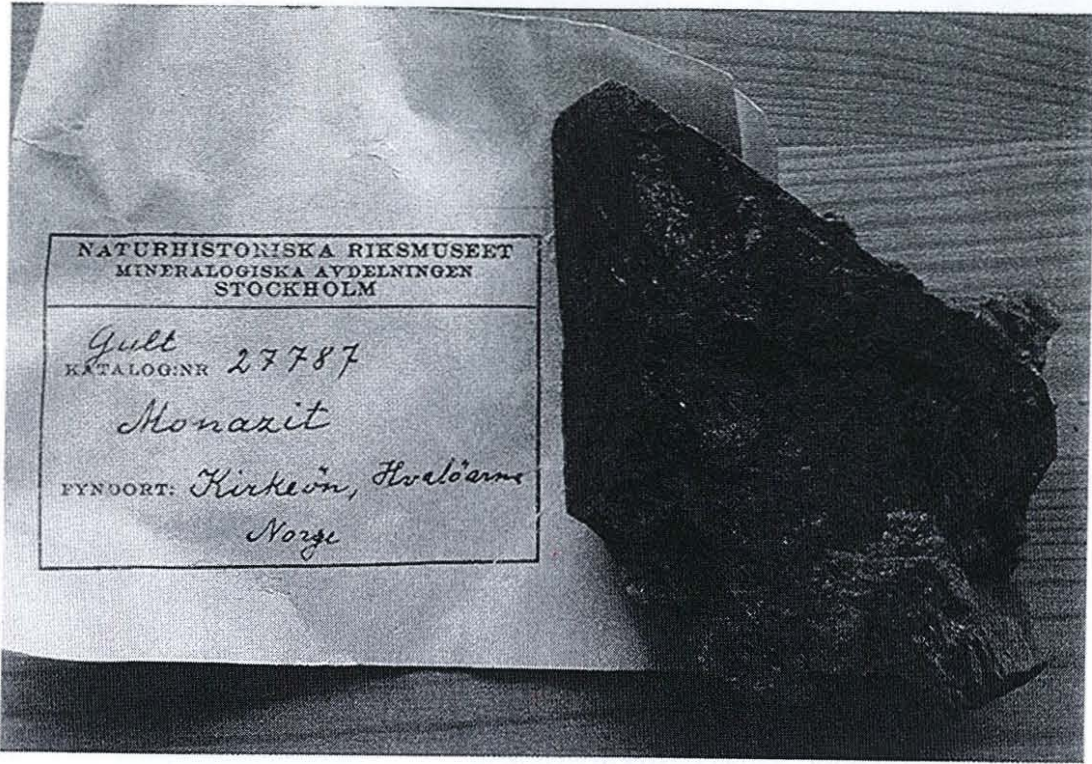 NATURHISTORISKA RIKSMUSEET
MINERALOGISKA AVDELNINGEN
STOCKHOLM
Gult
KATALOG:NR 27787
Monazit
FYNDORT: Kirkeön, Hvalöarne
Norge